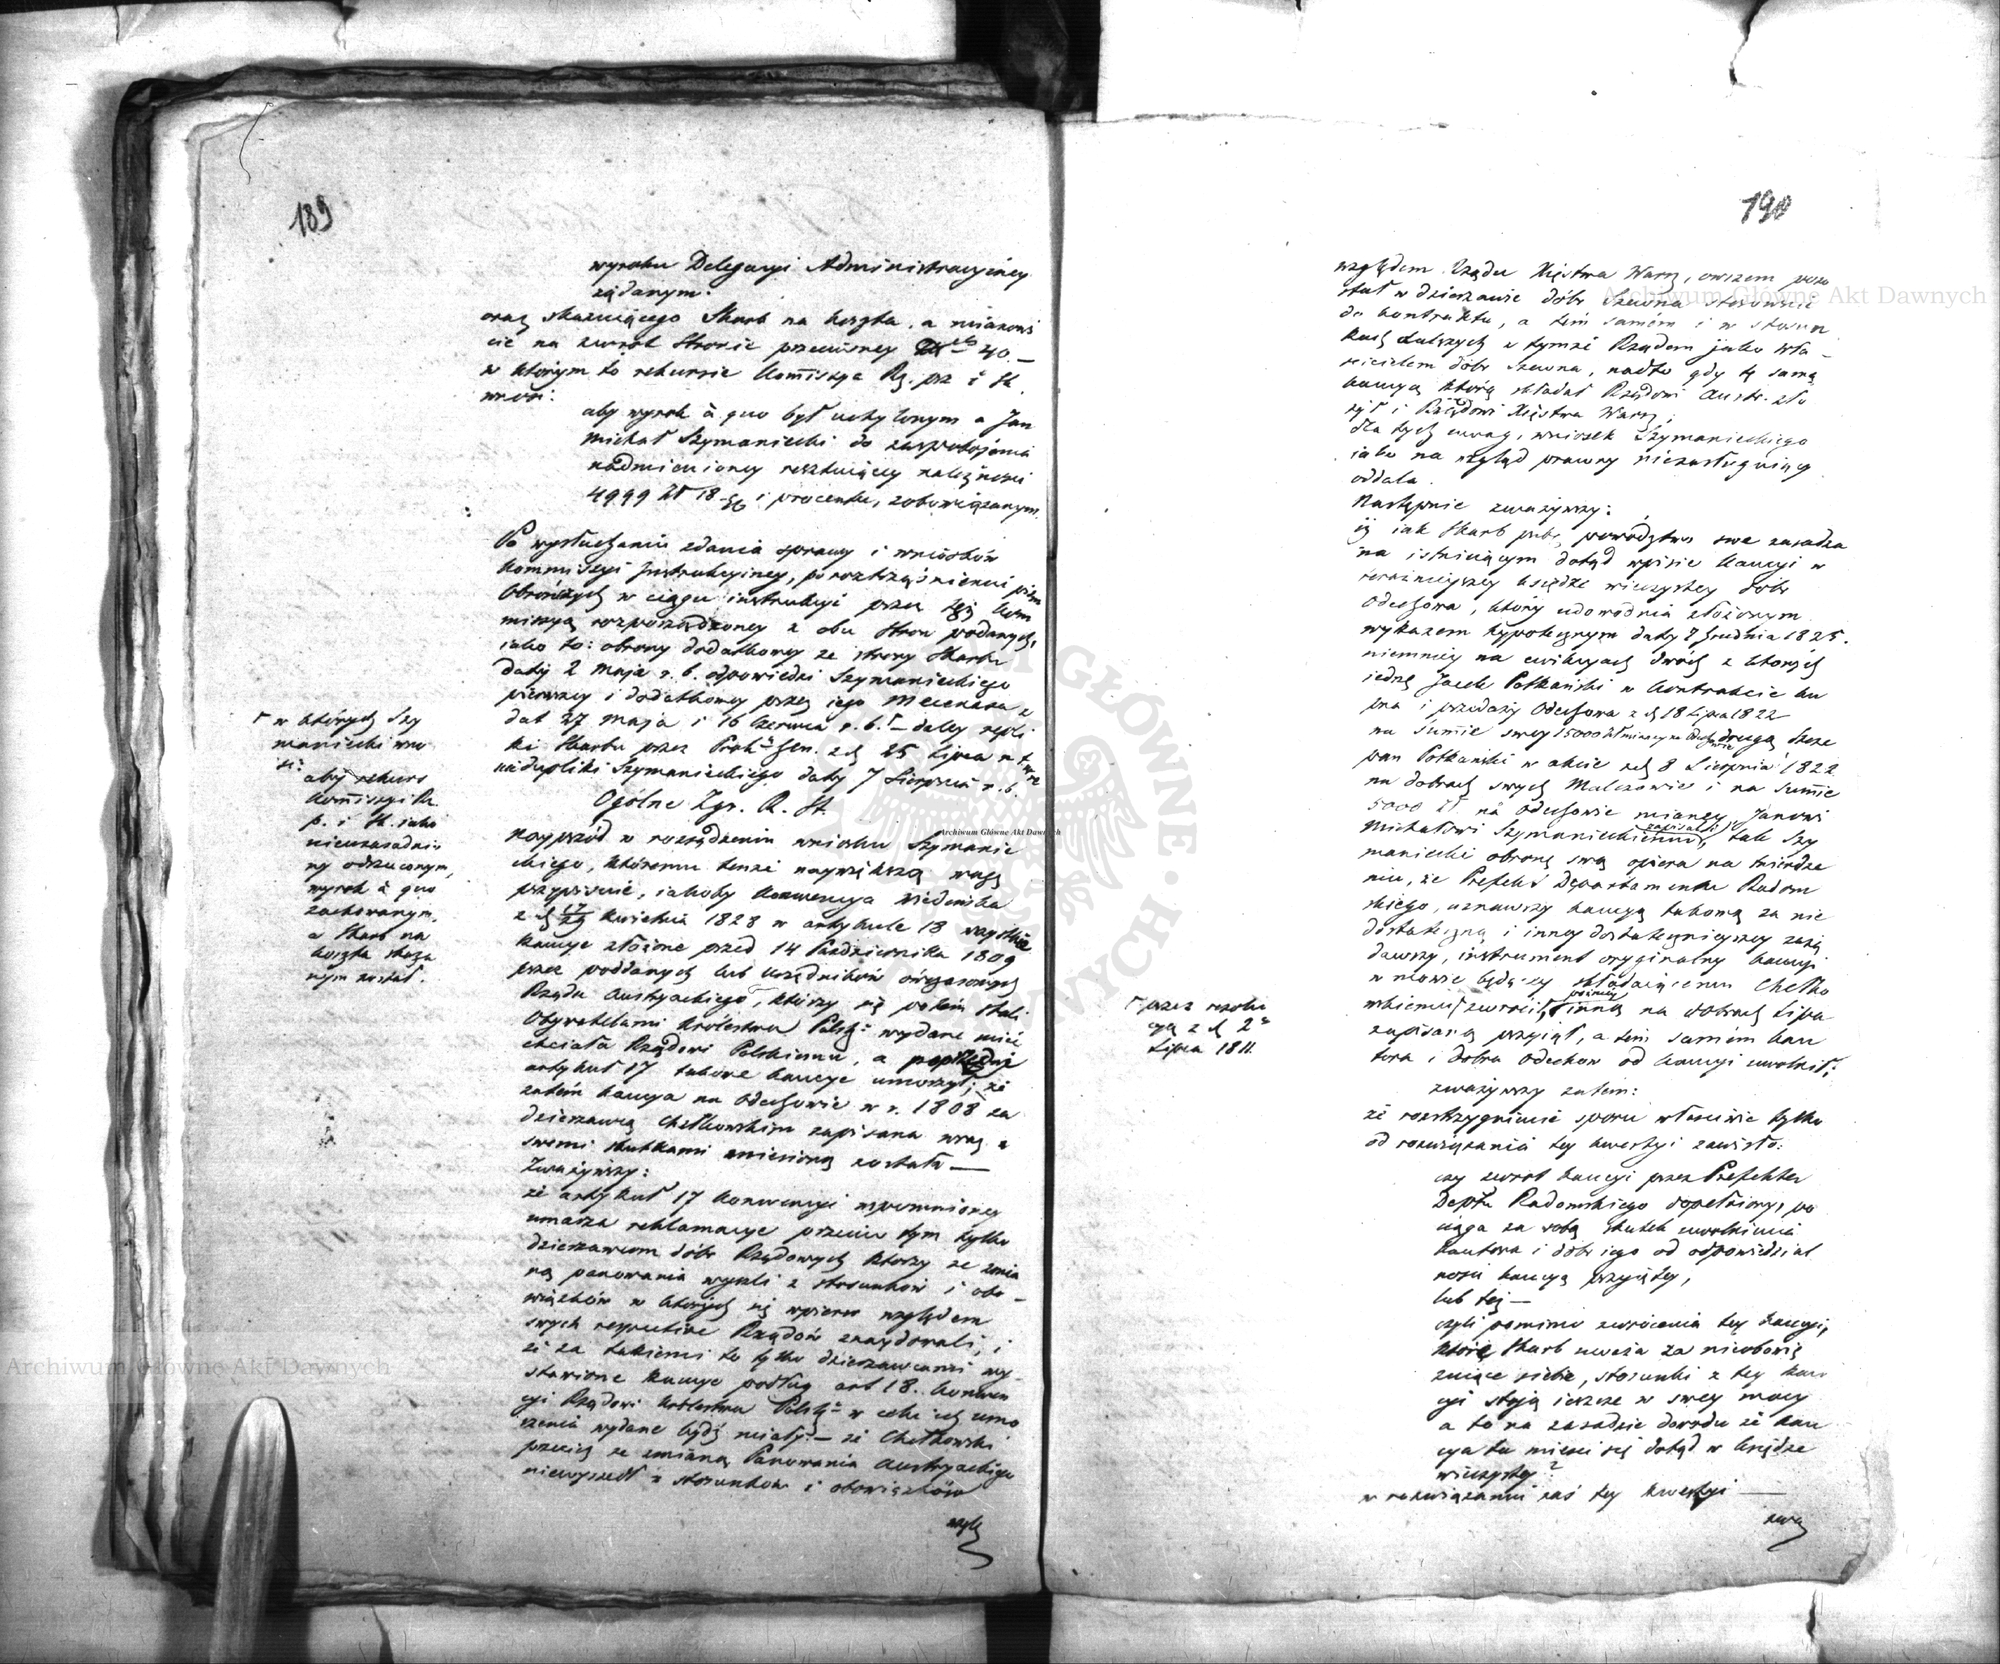 189
wyroku Delegacyi Administracyiney
żądanym.
oraz skazuiącego Skarb na koszta, a mianowi
cie na zwrot Stronie przeciwney 40.—
w którym to rekursie Kommissya Rz. prz i Sk.
wnosi:
aby wyrok à quo był uchylonym a Jan
Michał Szymaniecki do zaspokojenia
nadmienioney resztuiącey należności
4999 Zł 18 gr i procentu, zobowiązanym.
Po wysłuchaniu zdania sprawy i wniosków
Kommissyi Instrukcyiney, po roztrząśnieniu pism
obrończych w ciągu instrukcyi przez tęż Kom
missyą rozporządzoney z obu stron podanych,
iako to: obrony dodatkowey ze strony Skarbu
daty 2 Maja r. b. odpowiedzi Szymanieckiego
pierwszey i dodatkowey przez iego Mecenasa z
dat 27 Maja i 16 Czerwca r. b. — daley repli
ki Skarbu przez Prok. Gen. z d. 25 Lipca r. t.
dupliki Szymanieckiego daty 7 Sierpnia r. b.
Ogólne Zgr. R. St.
Γ w których Szy
maniecki wno
si:
aby rekurs
Kommissyi Rz.
p. i Sk. iako
nieuzasadnio
ny odrzuconym,
wyrok à quo
zachowanym,
a Skarb na
koszta skaza
nym został.
Nayprzód w rozsądzeniu wniosku Szymanie
ckiego, któremu tenże naywiększą wagę
przypisuie, iakoby Konwencya Wiedeńska
z d. 17/29 Kwietnia 1828 w artykule 18 wszystkie
kaucye złożone przed 14 Października 1809
przez poddanych lub urzędników ówczasowego
Rządu Austryackiego, którzy się potém stali
Obywatelami Królestwa Polsk. wydane mieć
chciała Rządowi Polskiemu, a poprzedni
artykuł 17 takowe kaucye umorzył; że
zatém kaucya na Odechowie w r. 1808 za
dzierżawcą Chełkowskim zapisana wraz z
swemi skutkami zniesioną została —
Zważywszy:
że artykuł 17 konwencyi wspomnioney
umarza reklamacye przeciw tym tylko
dzierżawcom dóbr Rządowych którzy ze zmia
ną panowania wyszli z stosunków i obo —
wiązków w których się wpierw względem
swych respective Rządów znaydowali, i
że za takiemi to tylko dzierżawcami wy —
stawione kaucye podług art 18. konwen
cyi Rządowi Królestwa Polsk. w celu ich umo
rzenia wydane bydź miały; — że Chełkowski
przecież ze zmianą Panowania Austryackiego
niewyszedł z stosunków i obowiązków
wzglę
190
względem Rządu Xięstwa Warsz, owszem pozo
stał w dzierżawie dóbr Szewna stosownie
do kontraktu, a tém samém i w stosun
kach dalszych z tymże Rządem jako wła —
ścicielem dóbr Szewna, nadto gdy tę samą
kaucyą którą składał Rządowi Austr. zło
żył i Rządowi Xięstwa Warsz;
dla tych uwag, wniosek Szymanieckiego
iako na wzgląd prawny niezasługuiący
oddala.
Następnie zważywszy:
iż iak Skarb publ. powództwo swe zasadza
na istnieiącym dotąd wpisie kaucyi w
teraźnieyszey księdze wieczystey dóbr
Odechowa, który udowodnia złożonym
wykazem hypotecznym daty 7 Grudnia 1825.
niemniey na ewikcyach dwóch z których
iednę Jacek Potkański w kontrakcie ku
pna i przedaży Odechowa z d. 18 Lipca 1822
na summie swey 15000 zł mianey na Odechowie drugą Szcze
pan Potkański w akcie z d. 8 Sierpnia 1822
na dobrach swych Malczowie i na summie
5000 Zł na Odechowie mianey, Janowi
Michałowi Szymanieckiemu zapisali, tak Szy
maniecki obronę swą opiera na twierdze
niu, że Prefekt Departamentu Radom
skiego, uznawszy kaucyą takową za nie
dostateczną i inney dostatecznieyszey zażą
dawszy, instrument oryginalny kaucyi
w mowie będącey składaiącemu Chełko
wskiemu Γ zwrócił, późniey inną na dobrach Lipa
zapisaną przyiął, a tém samém kau
tora i dobra Odechow od kaucyi uwolnił;
Γ przez rezolu
cyą z d. 2
Lipca 1811.
zważywszy zatém:
że rozstrzygnienie sporu właściwie tylko
od rozwiązania tey kwestyi zawisło:
czy zwrot kaucyi przez Prefekta
Deptu Radomskiego dopełniony, po
ciąga za sobą skutek uwolnienia
kautora i dóbr iego od odpowiedzial
ności kaucyą przyiętey,
lub też —
czyli pomimo zwrócenia tey kaucyi,
które Skarb uważa za nieobowią
zuiące siebie, stosunki z tey kau
cyi stoją ieszcze w swey mocy
a to na zasadzie dowodu że kau
cya ta mieści się dotąd w księdze
wieczystey?
w rozwiązaniu zaś tey kwestyi —
zwa
Archiwum Główne Akt Dawnych
Archiwum Główne Akt Dawnych
Archiwum Główne Akt Dawnych